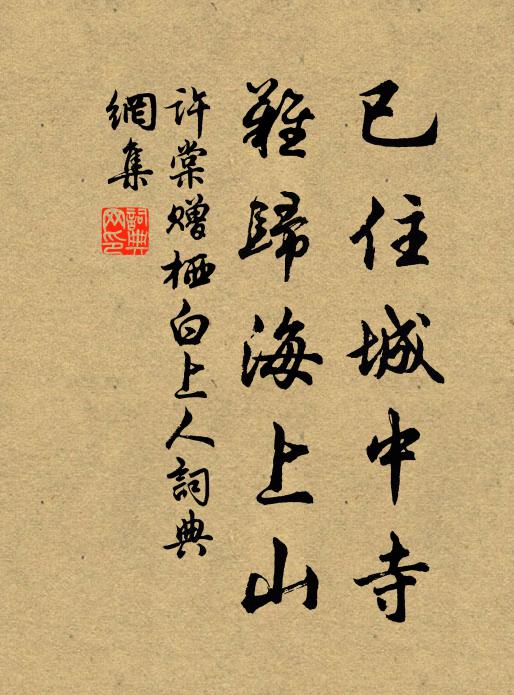 已住城中寺
難歸海上山
許棠贈栖白上人詞典
網集
詞典
网印